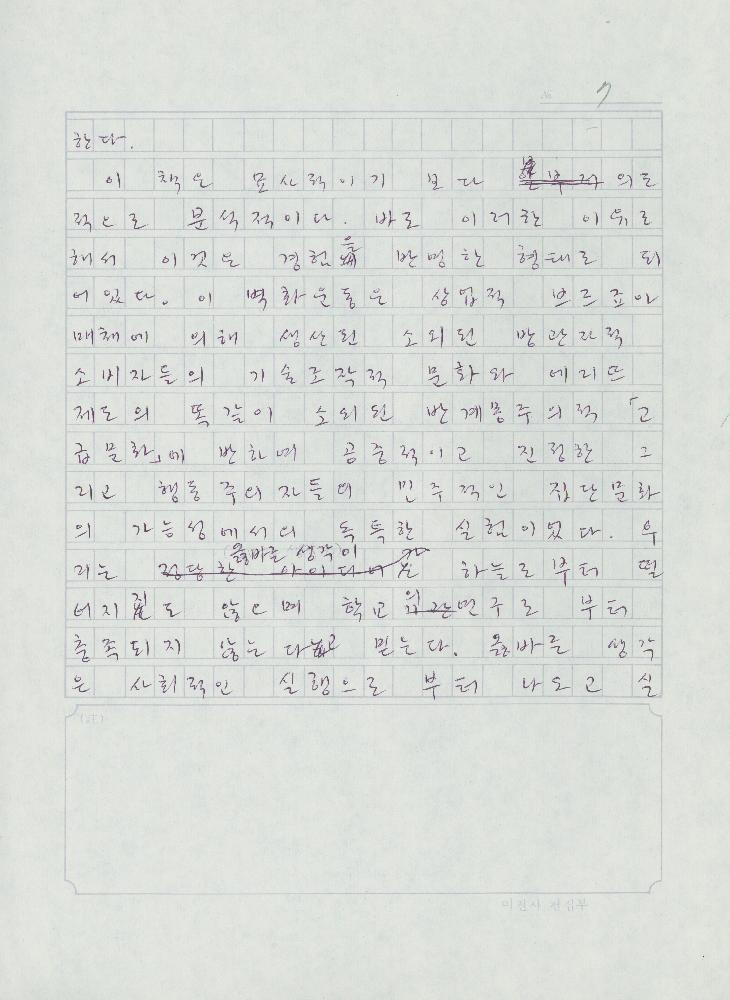 № 7
한다.
이 책은 묘사적이기 보다 의도
적으로 분석적이다. 바로 이러한 이유로
해서 이것은 경험을 반영한 형태로 되
어있다. 이 벽화운동은 상업적 브르죠아
매체에 의해 생산된 소외된 방관자적
소비자들의 기술조작적 문화와 에리뜨
제도의 똑같이 소외된 반계몽주의적 「고
급문화」에 반하며 공중적이고 진정한 그
리고 행동주의자들의 민주적인 집단문화
의 가능성에서의 독특한 실험이었다. 우
올바른 생각이
리는 정당한 아이디어는 하늘로부터 떨
어지질도 않으며 학교 부터
충족되지 않는다고 믿는다. 올바른 생각
은 사회적인 실행으로 부터 나오고 실
(註)
미진사 편집부